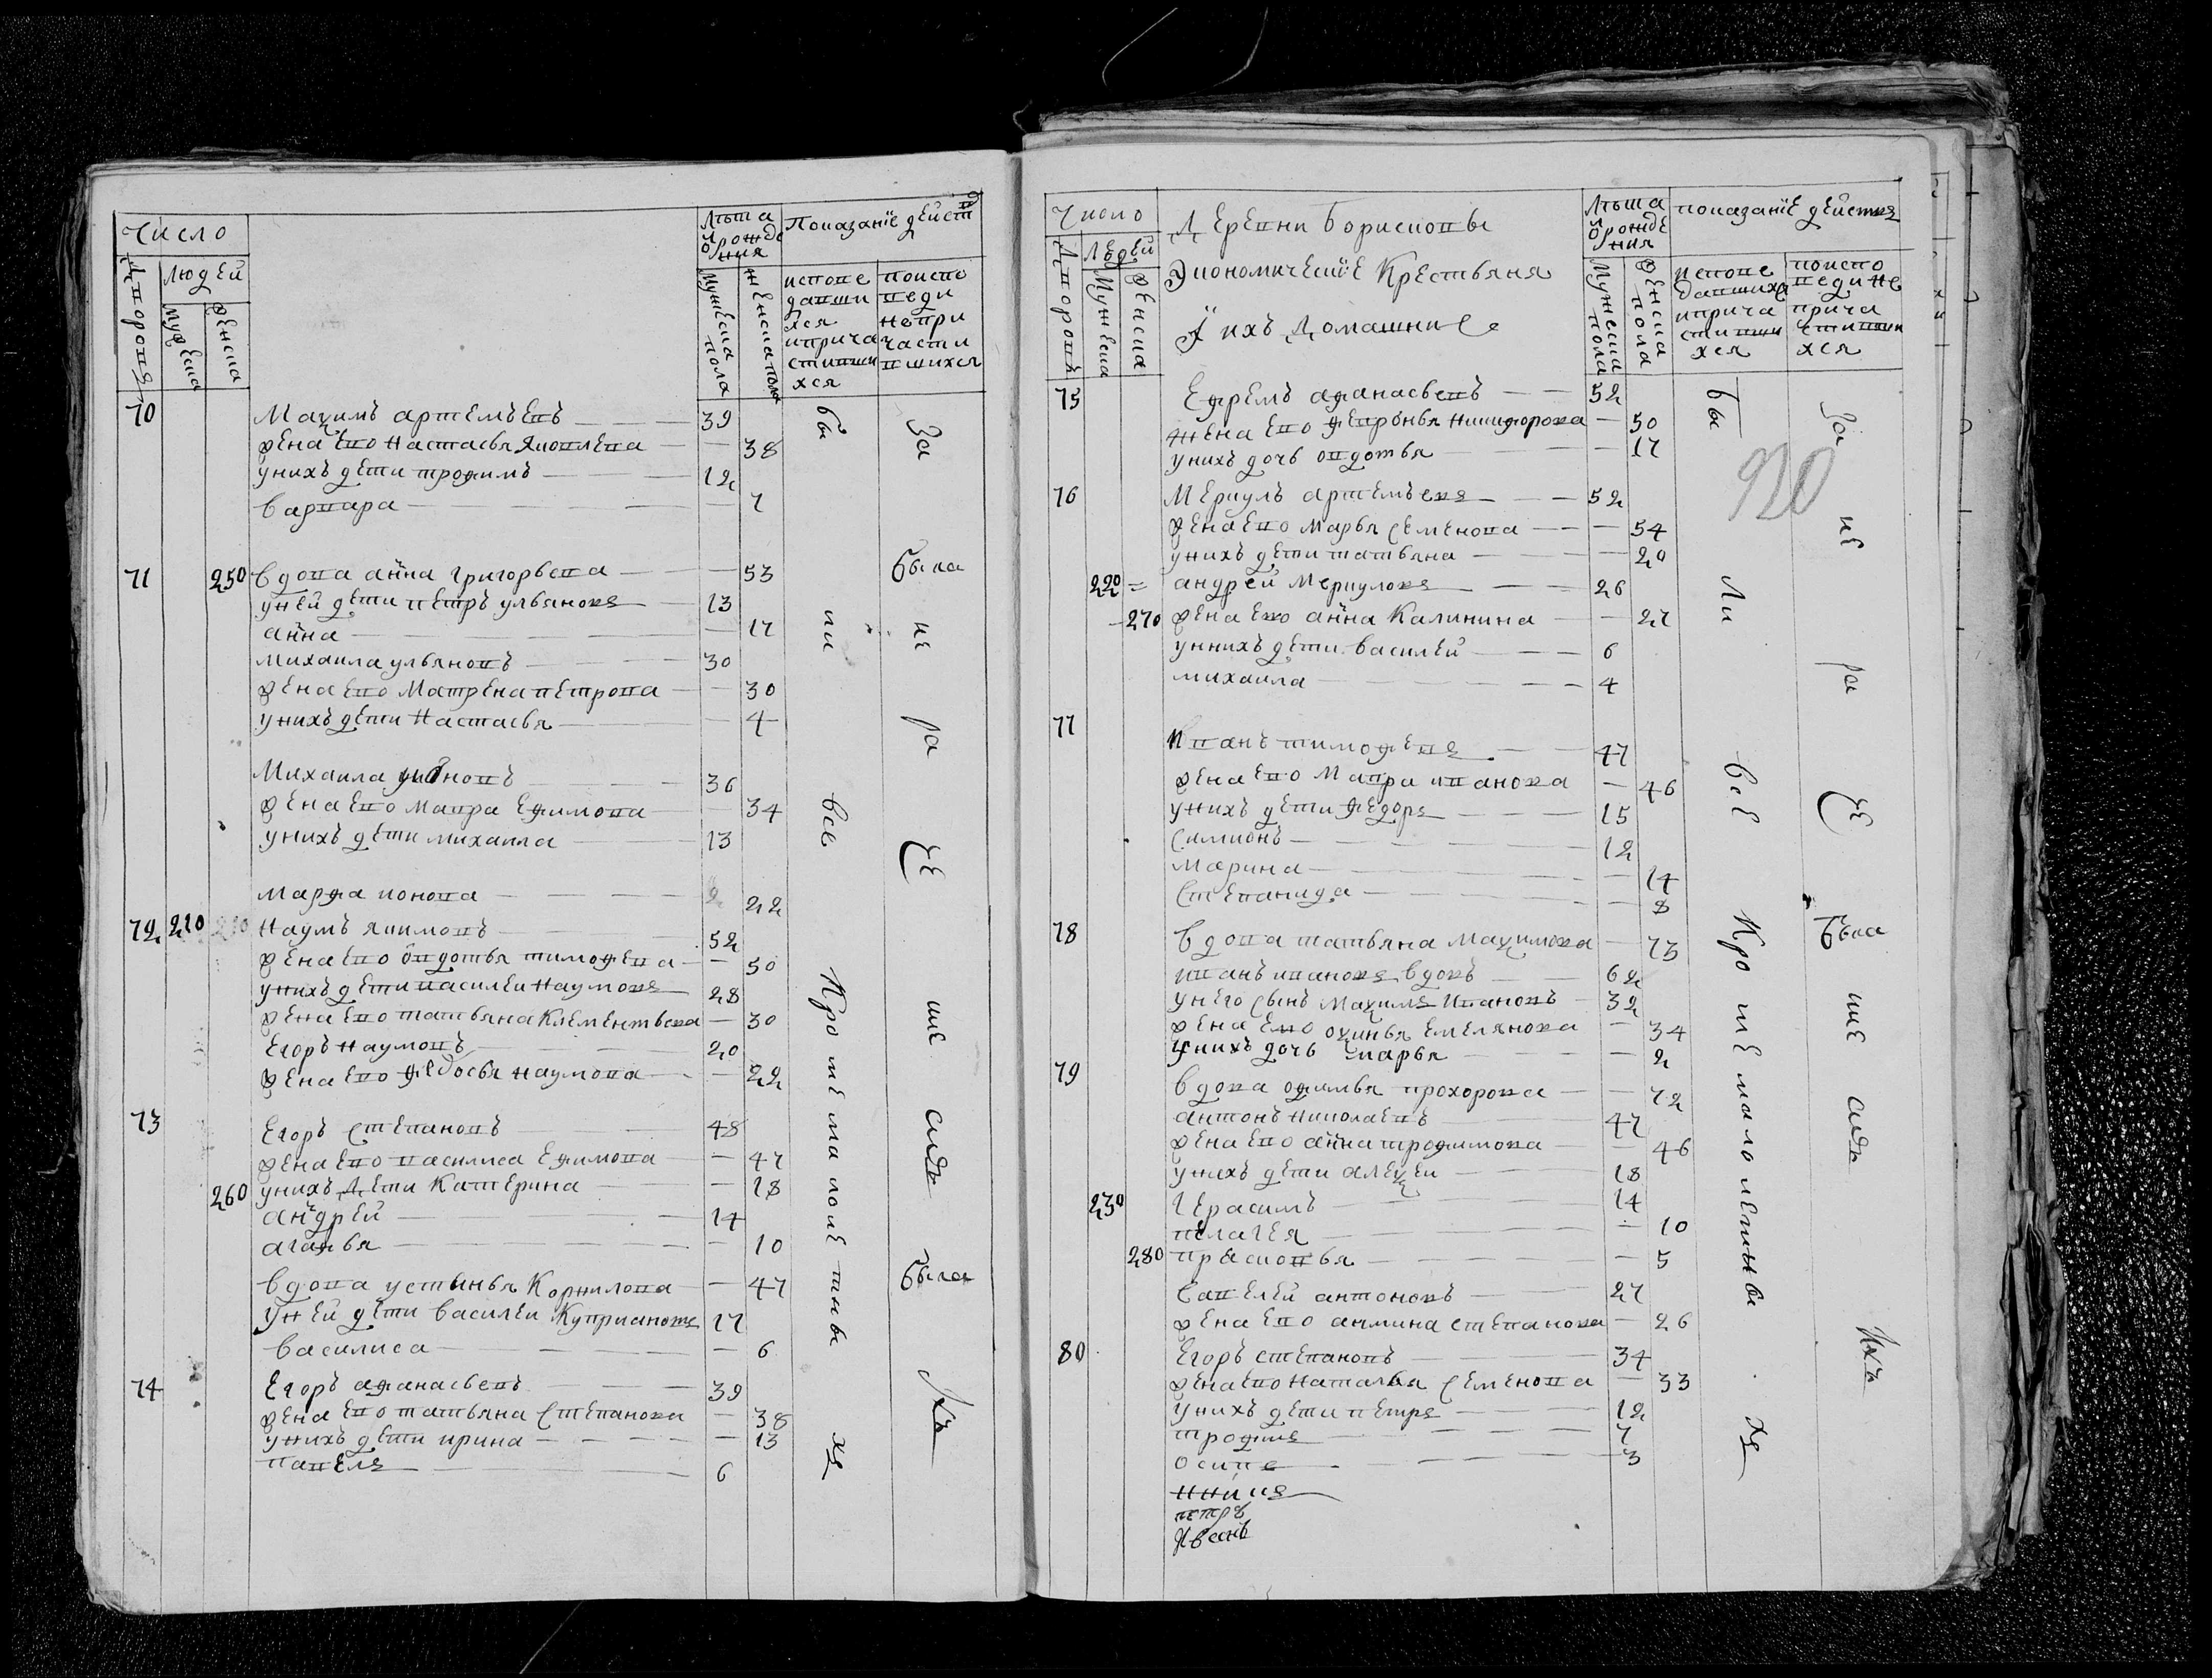 Число
Дворовъ
Людей
Мужеска
Женска
Лѣта ѿ рожденія
Мужеска пола
Женска пола
Показаніе дѣйств
исповедавшихся и причастившихся
исповеди не причастившихся
70 Маѯимъ артемьевъ 39
жена ево Настасья Яковлева 38
у нихъ дети трофимъ 12
варвара 7
71 250 вдова анна григорьева 53
у ней дети петръ ульяновъ 13
анна 17
михаила ульяновъ 30
жена ево Матрена петрова 30
у нихъ дети Настасья 4
Михаила 36
жена ево мавра Ефимова 34
у нихъ дети михаила 13
марфа ионова 22
72 210 Наумъ якимовъ 52
жена ево овдотья тимофева 50
у нихъ дети василеи Наумовъ 28
жена ево татьяна Клементьева 30
Егоръ Наумовъ 20
жена ево федосья наумова 22
73 Егоръ степановъ 48
жена ево василиса Ефимова 47
260 у нихъ Дети Катерина 18
андрей 14
агафья 10
вдова устинья Корнилова 47
у ней дети василеи Куприяновъ 17
василиса 6
74 Егоръ афанасьевъ 39
жена ево татьяна степанова 38
у нихъ дети ирина 13
павелъ 6
бы ли все кроме малолетныхъ
За
была
Число
Дворовъ
Людей
Мужеска
Женска
Деревни борисковы
Экономические Крестьяня
И ихъ Домашние
Лѣта ѿ рожденія
Мужеска пола
Женска пола
показаніе дейстия
исповедавшихся и причастившихся
по исповеди не причастившихся
75 Ефремъ афанасьевъ 52
жена ево февронья никифорова 50
у нихъ дочь овдотья 17
76 Меркулъ артемьевъ 52
жена ево марья семенова 54
у нихъ дети татьяна 20
220 андрей меркуловъ 26
270 жена ево анна Калинина 27
у ннихъ дети василей 6
михаила 4
77 Иванъ тимофевъ 47
жена ево Мавра иванова 46
у нихъ дети федоръ 15
симионъ 12
марина 14
степанида 8
78 вдова татьяна маѯимова 73
иванъ ивановъ вдовъ 62
у него сынъ маѯимъ Ивановъ 32
жена ево оѯинья емелянова 34
у нихъ дочь марья 2
79 вдова офимья прохорова 72
антонъ николаевъ 47
жена ево анна трофимова 46
у нихъ дети алеѯеи 18
230 герасимъ 14
пелагея 10
280 прасковья 5
савелей антоновъ 27
жена ево акилина степанова 26
80 Егоръ степановъ 34
жена ево наталья семенова 33
у нихъ дети петръ 12
трофимъ 7
осипъ 3
петръ
Иванъ
бы ли все кроме малолетныхъ
920